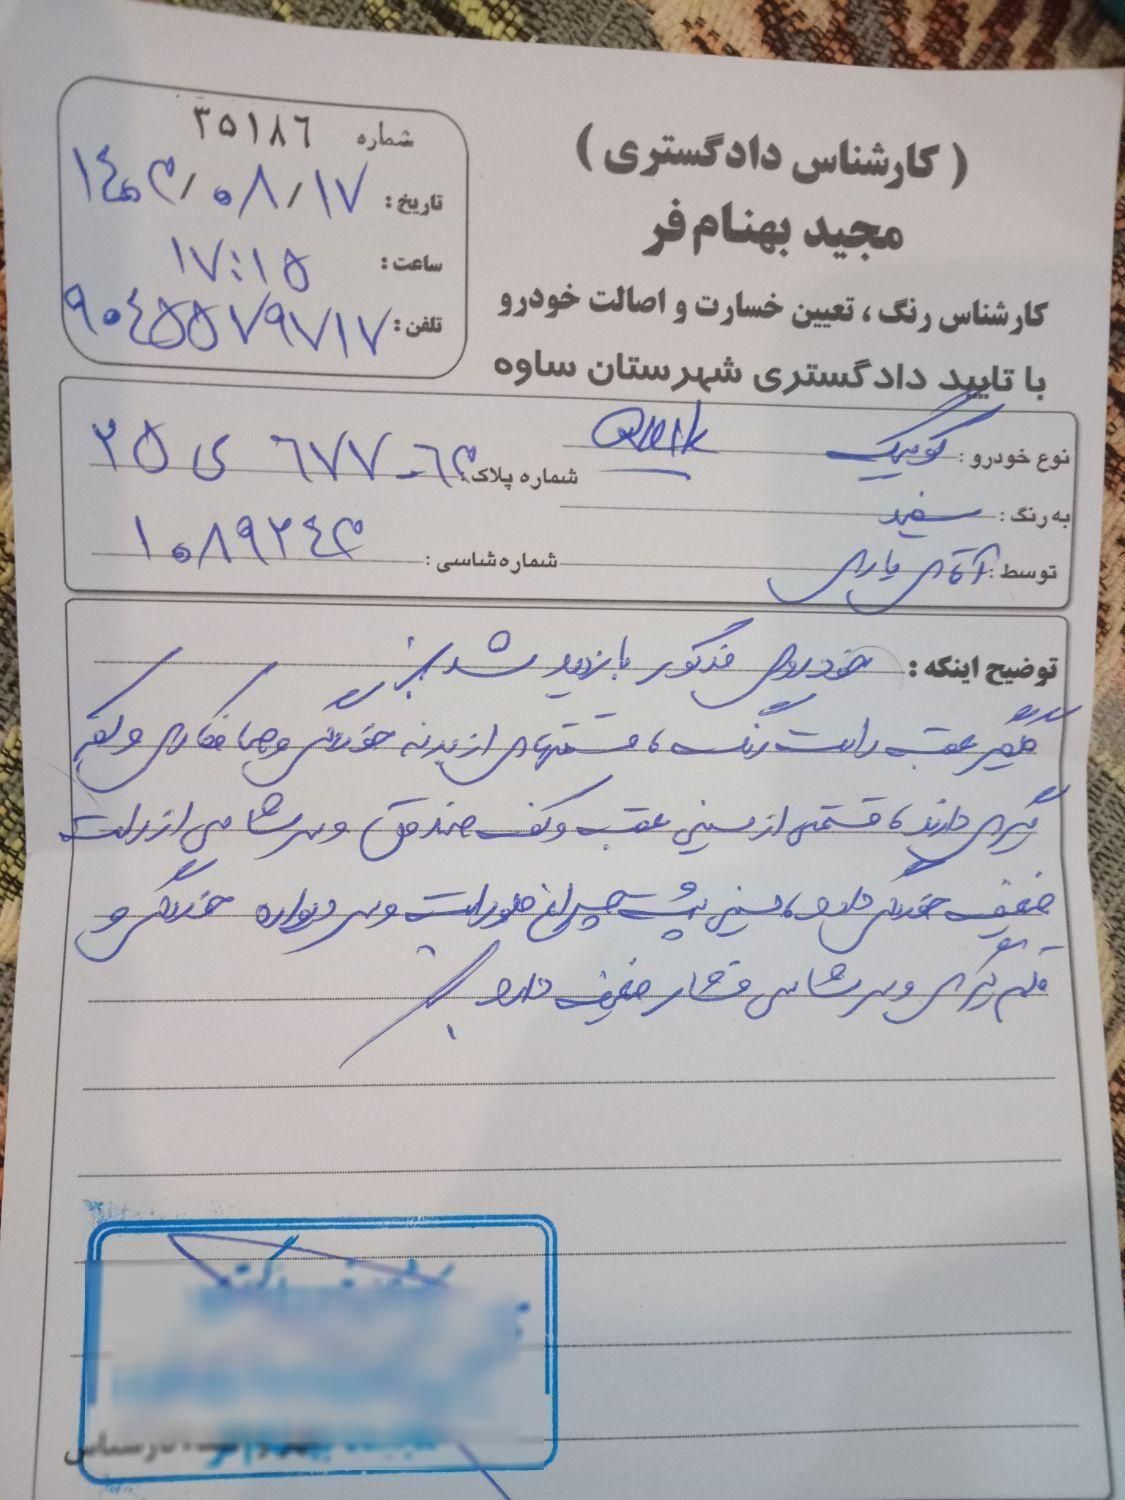 ( کارشناس دادگستری )
مجید بهنام فر
کارشناس رنگ ، تعیین خسارت و اصالت خودرو
با تایید دادگستری شهرستان ساوه
شماره ۳۵۱۸۶
تاریخ : ۱۴۰۳/۰۸/۱۷
ساعت : ۱۷:۱۵
تلفن :
نوع خودرو : کوییک Quick
شماره پلاک ۶۳ - ۶۷۷ ی ۲۵
به رنگ : سفید
شماره شاسی : ۱۰۸۹۲۴۳
توسط : آقای یاری
توضیح اینکه : خودروی مذکور بازدید شد بجز
گلگیر عقب راست رنگ ، قسمتهای از بدنه خوردگی و صافکاری و لکه
گیری دارند ، قسمتی از سینی عقب و کف صندوق و سر شاسی از راست
ضعیف خوردگی دارد ، سینی پشت چراغ جلو راست و سر دیواره خوردگی و
قلم گیری و سر شاسی فشار خفیف دارد
کارشناس